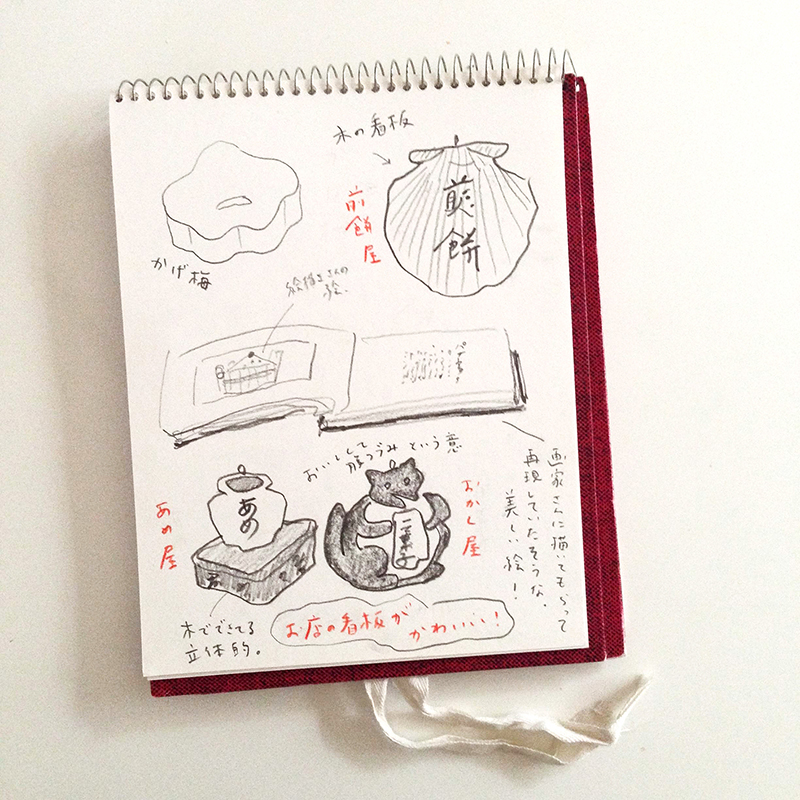 木の看板
煎餅屋
煎餅
かげ梅
絵描きさんの
絵.
おいしくて
腹つづみ という意
あめ屋
あめ
おかし屋
画家さんに描いてもらって
再現していたそうな.
美しい絵!
木でできてる
立体的。
お店の看板が
かわいい!